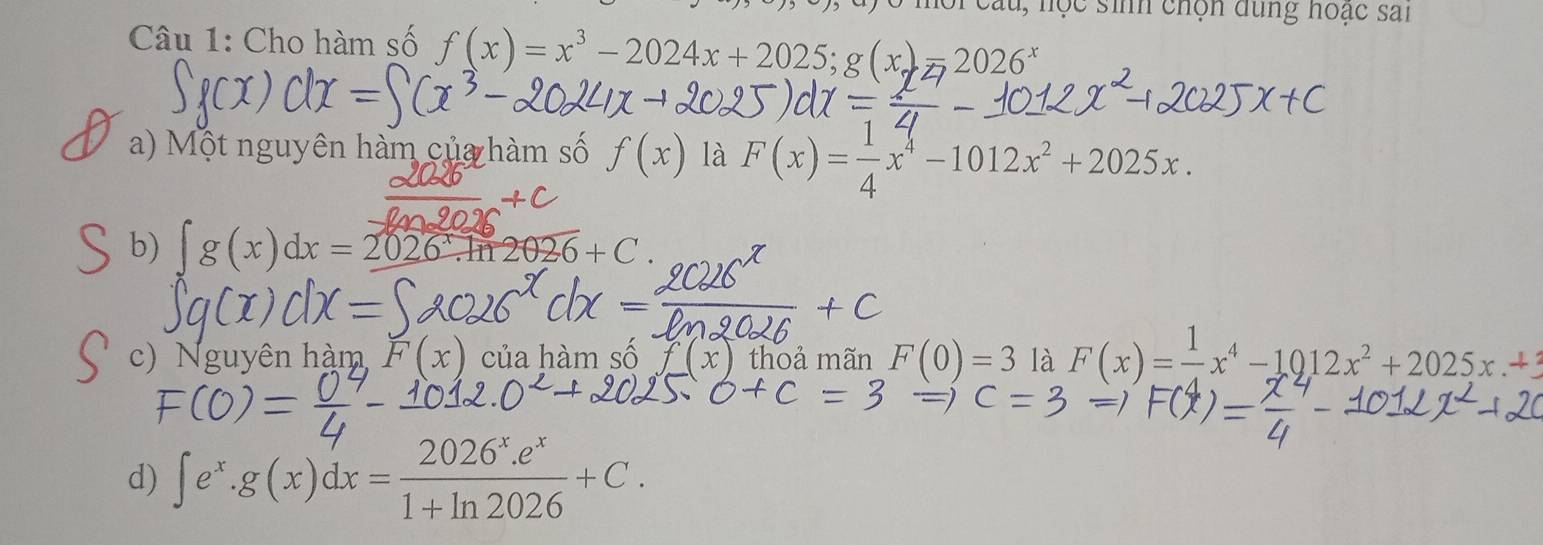 câu, học sinh chọn đúng hoặc sai
Câu 1: Cho hàm số f(x) = x³ − 2024x + 2025; g(x) = 2026ˣ
∫f(x)dx = ∫(x³ − 2024x + 2025)dx = x⁴/4 − 1012x² + 2025x + C
Đ a) Một nguyên hàm của hàm số f(x) là F(x) = 1/4 x⁴ − 1012x² + 2025x.
2026ˣ/ln2026 + C
S b) ∫g(x)dx = 2026ˣ.ln 2026 + C.
∫g(x)dx = ∫2026ˣdx = 2026ˣ/ln2026 + C
S c) Nguyên hàm F(x) của hàm số f(x) thoả mãn F(0) = 3 là F(x) = 1/4 x⁴ − 1012x² + 2025x. + 3
F(0) = 0⁴/4 − 1012.0² + 2025.0 + C = 3 ⇒ C = 3 ⇒ F(x) = x⁴/4 − 1012x² + 20
d) ∫eˣ.g(x)dx = 2026ˣ.eˣ/(1 + ln 2026) + C.